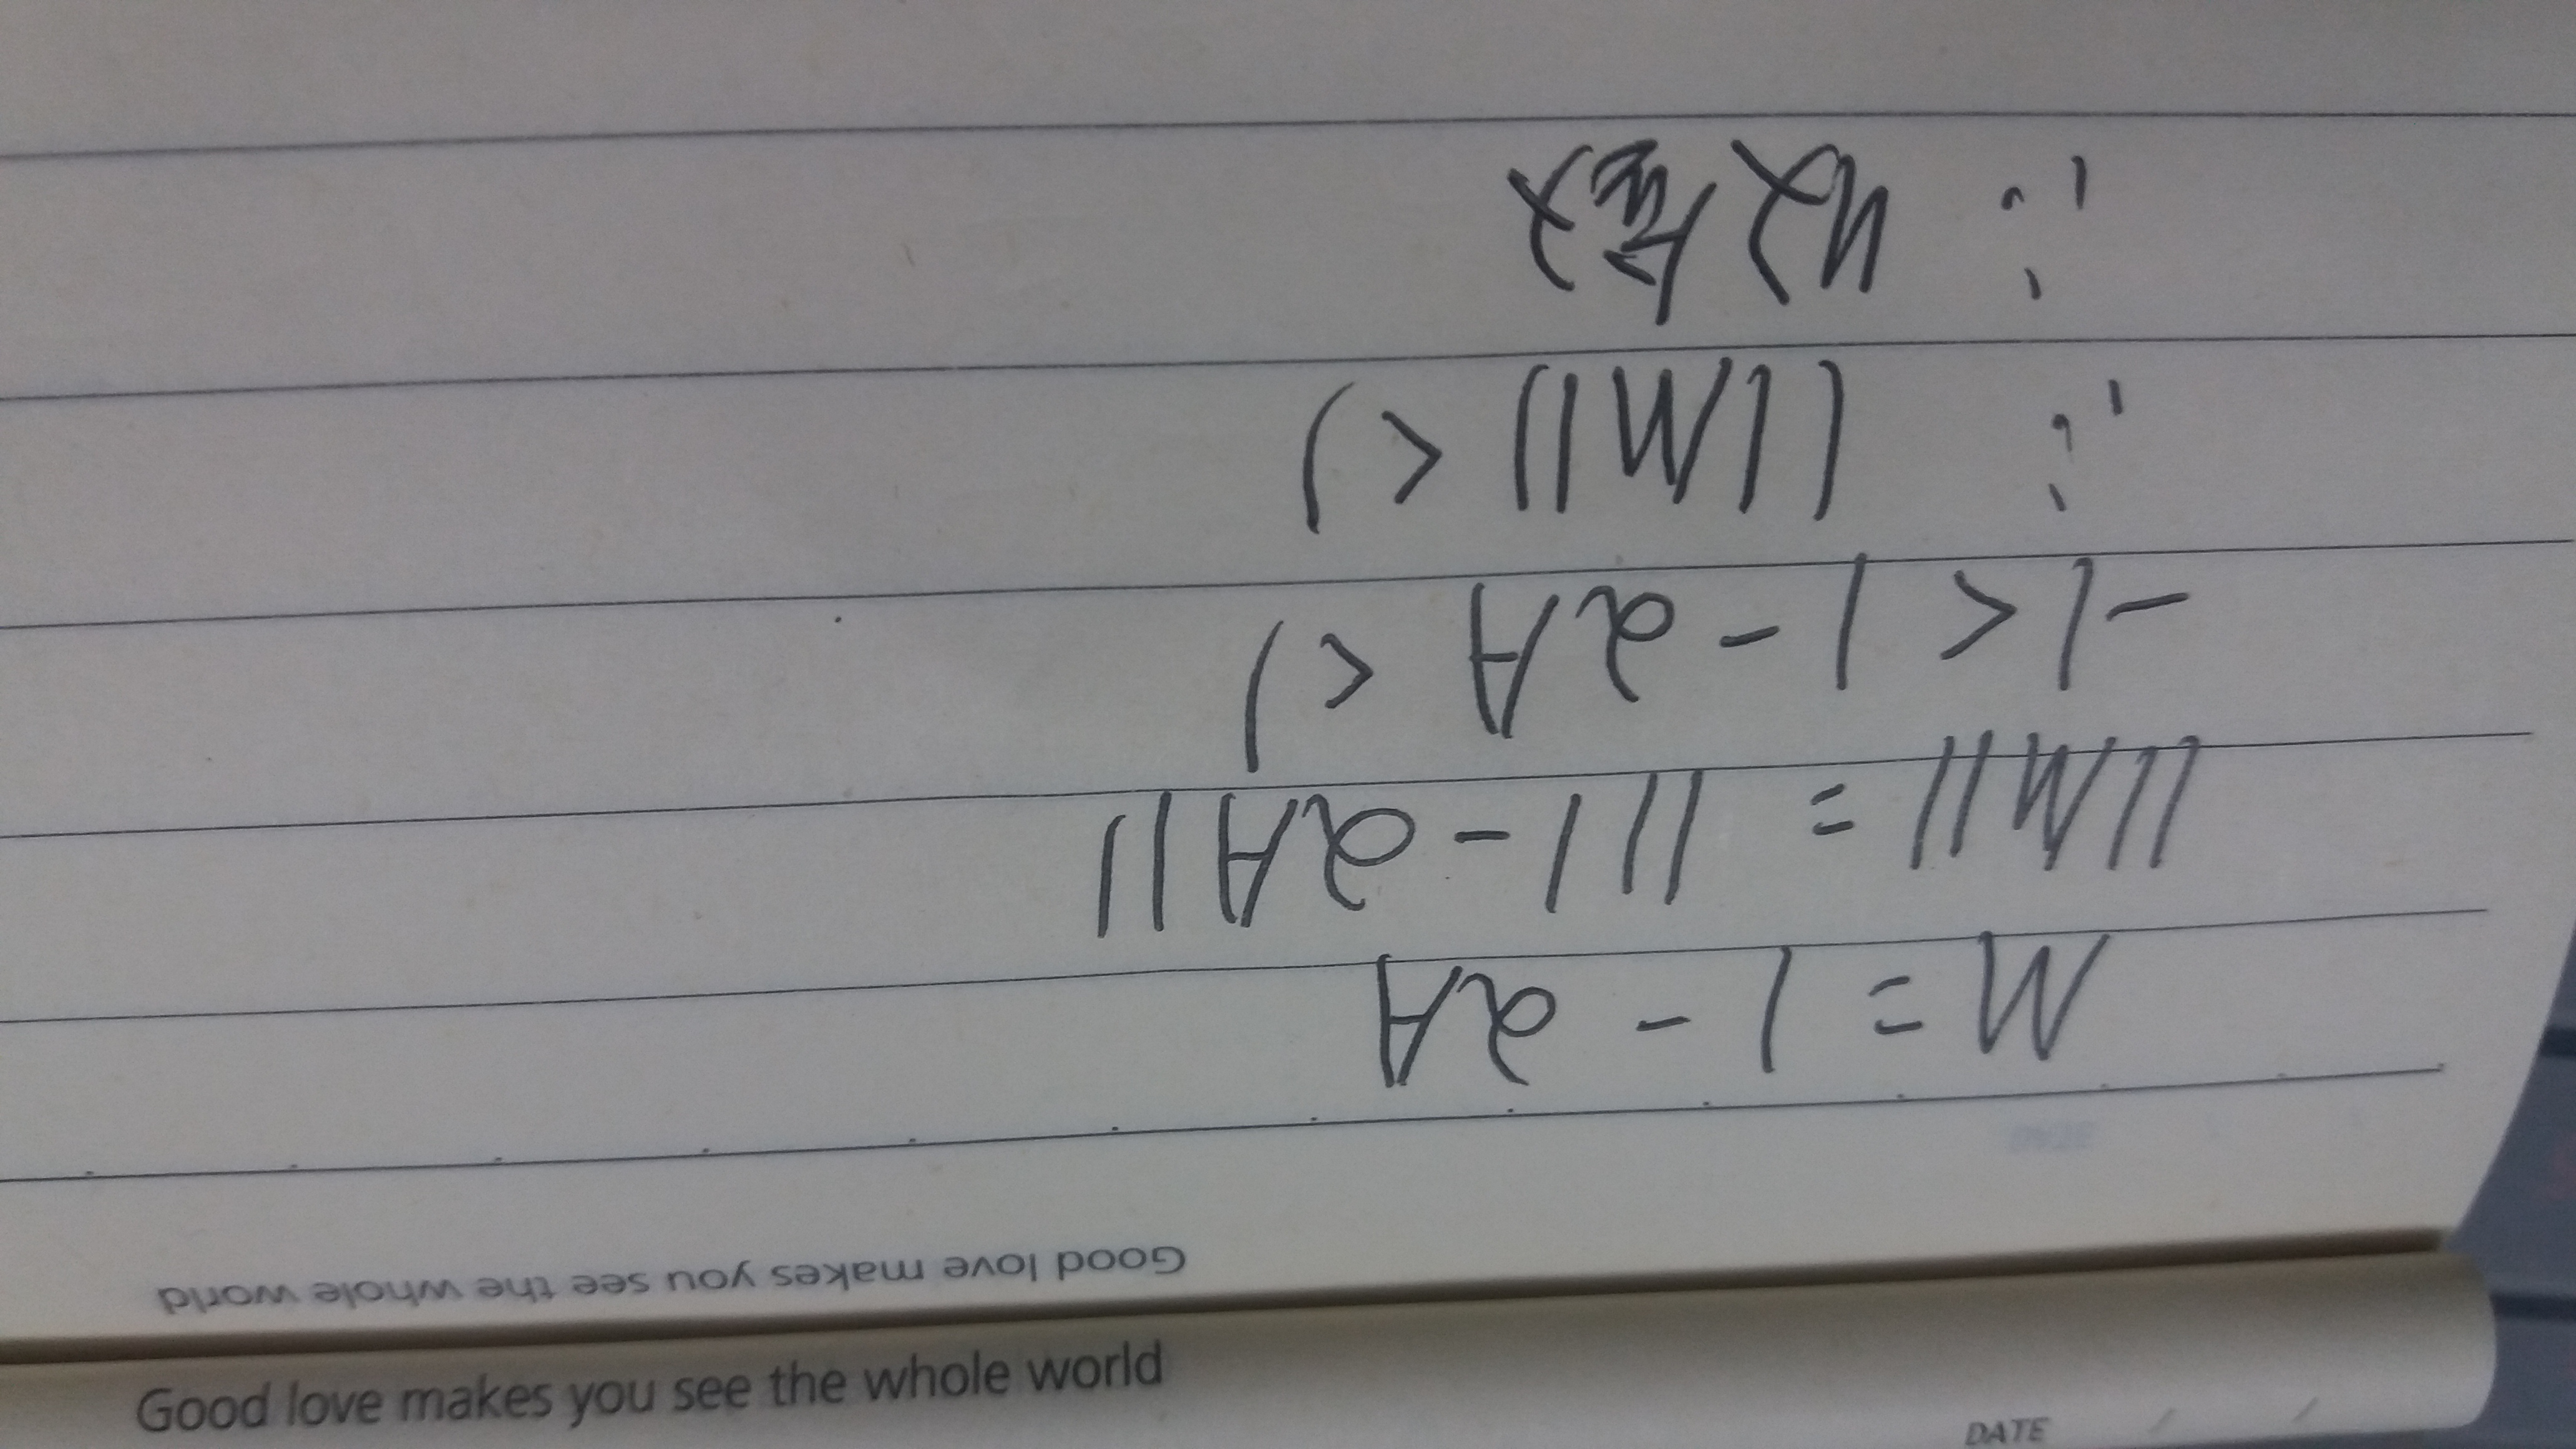 DATE
Good love makes you see the whole world
Good love makes you see the whole world
M = 1 - 2A
||M|| = ||1 - 2A||
-1 < 1 - 2A < 1
∴ ||M|| < 1
∴ 收敛